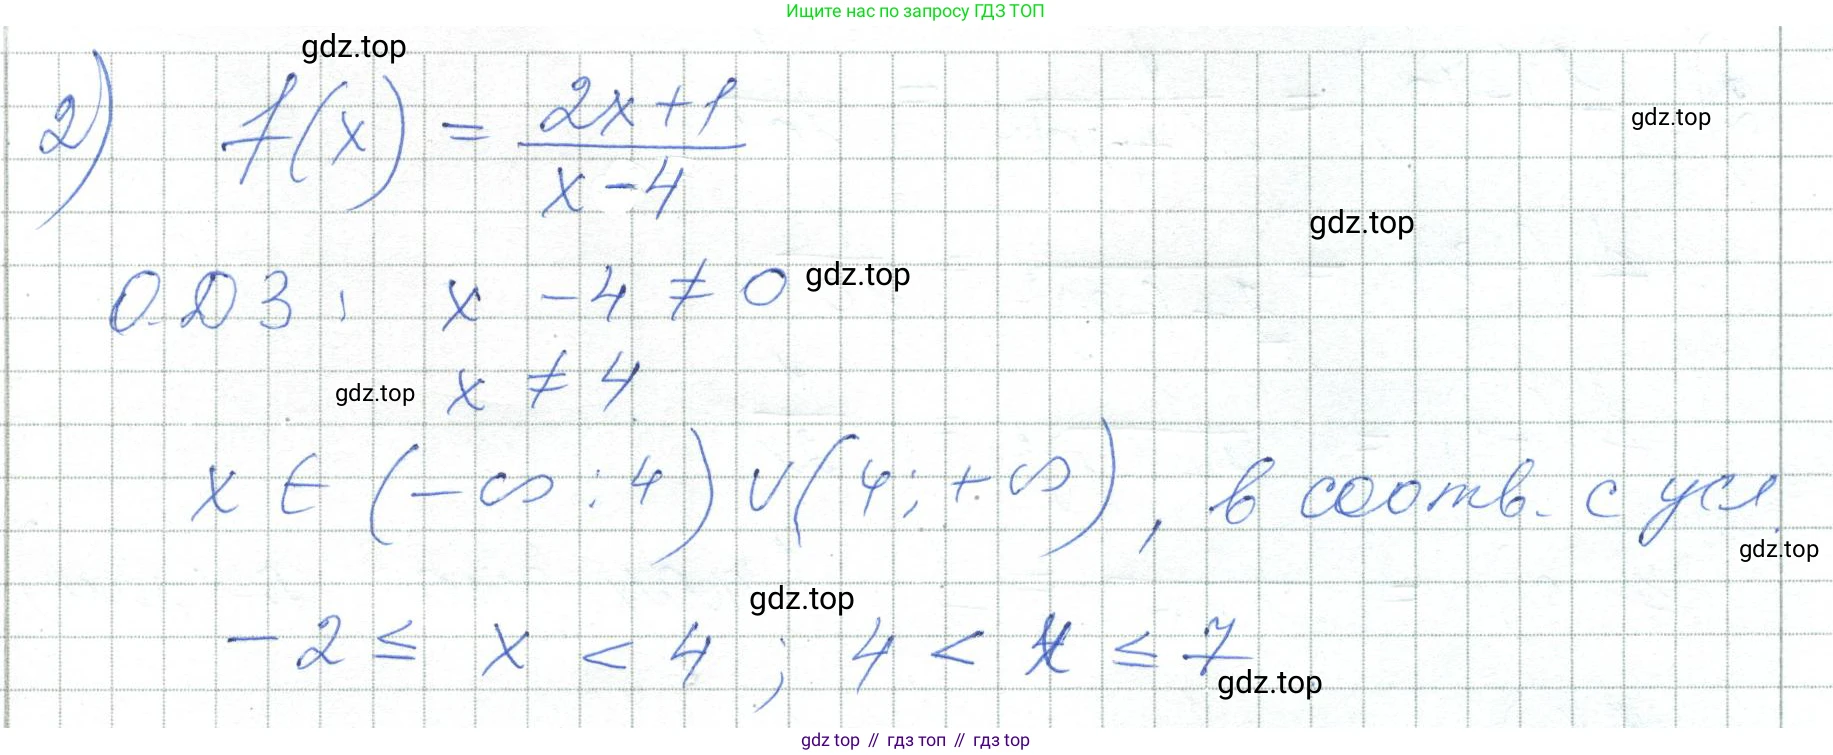 Ищите нас по запросу ГДЗ ТОП
gdz.top
2) f(x) = (2x+1)/(x-4)
gdz.top
gdz.top
О.ОЗ: x - 4 ≠ 0 gdz.top
gdz.top x ≠ 4
x ∈ (-∞; 4) ∪ (4; +∞), в соотв. с усл.
gdz.top
gdz.top
-2 ≤ x < 4; 4 < x ≤ 7
gdz.top
gdz top // гдз топ // гдз top